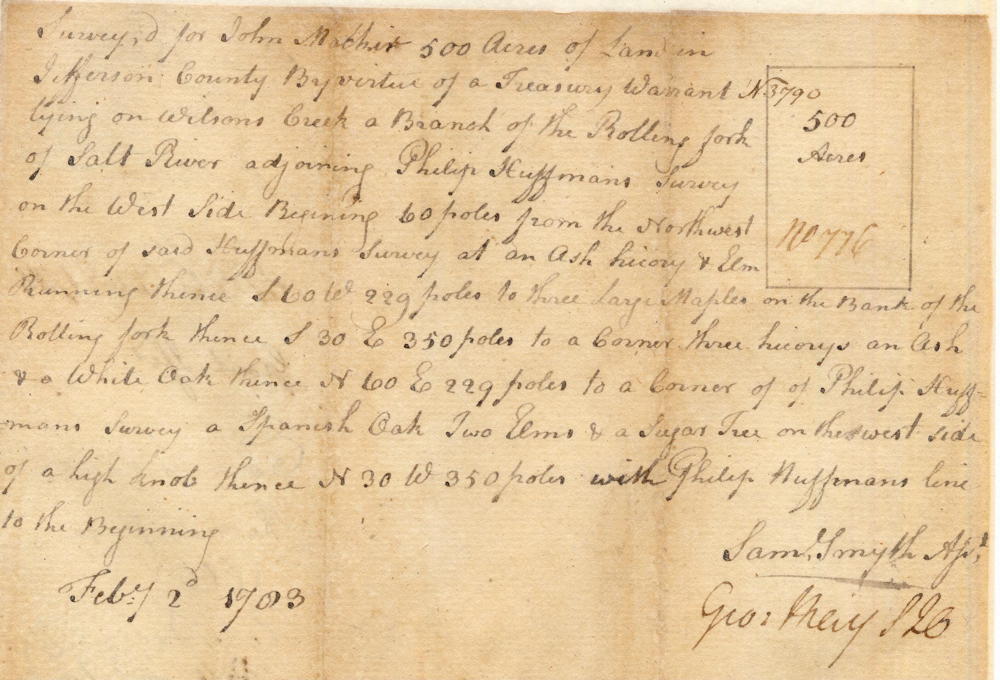 Survey,d for John Mathis 500 Acres of Land in
Jefferson County By virtue of a Treasury Warrant No 3790
lying on Wilsons Creek a Branch of the Rolling fork
of Salt River adjoining Philip Huffmans Survey
on the West Side Begining 60 poles from the Northwest
Corner of said Huffmans Survey at an Ash hicory & Elm
Running thence S 60 W 229 poles to three Large Maples on the Bank of the
Rolling fork thence S 30 E 350 poles to a Corner three hicorys an Ash
& a White Oak thence N 60 E 229 poles to a Corner of of Philip Huff=
=mans Survey a Spanish Oak Two Elms & a Sugar Tree on the west side
of a high knob thence N 30 W 350 poles with Philip Huffmans line
to the Beginning
500
Acres
No 776
Saml. Smyth Asst.
Feby 2d 1783
Geo: May SJC